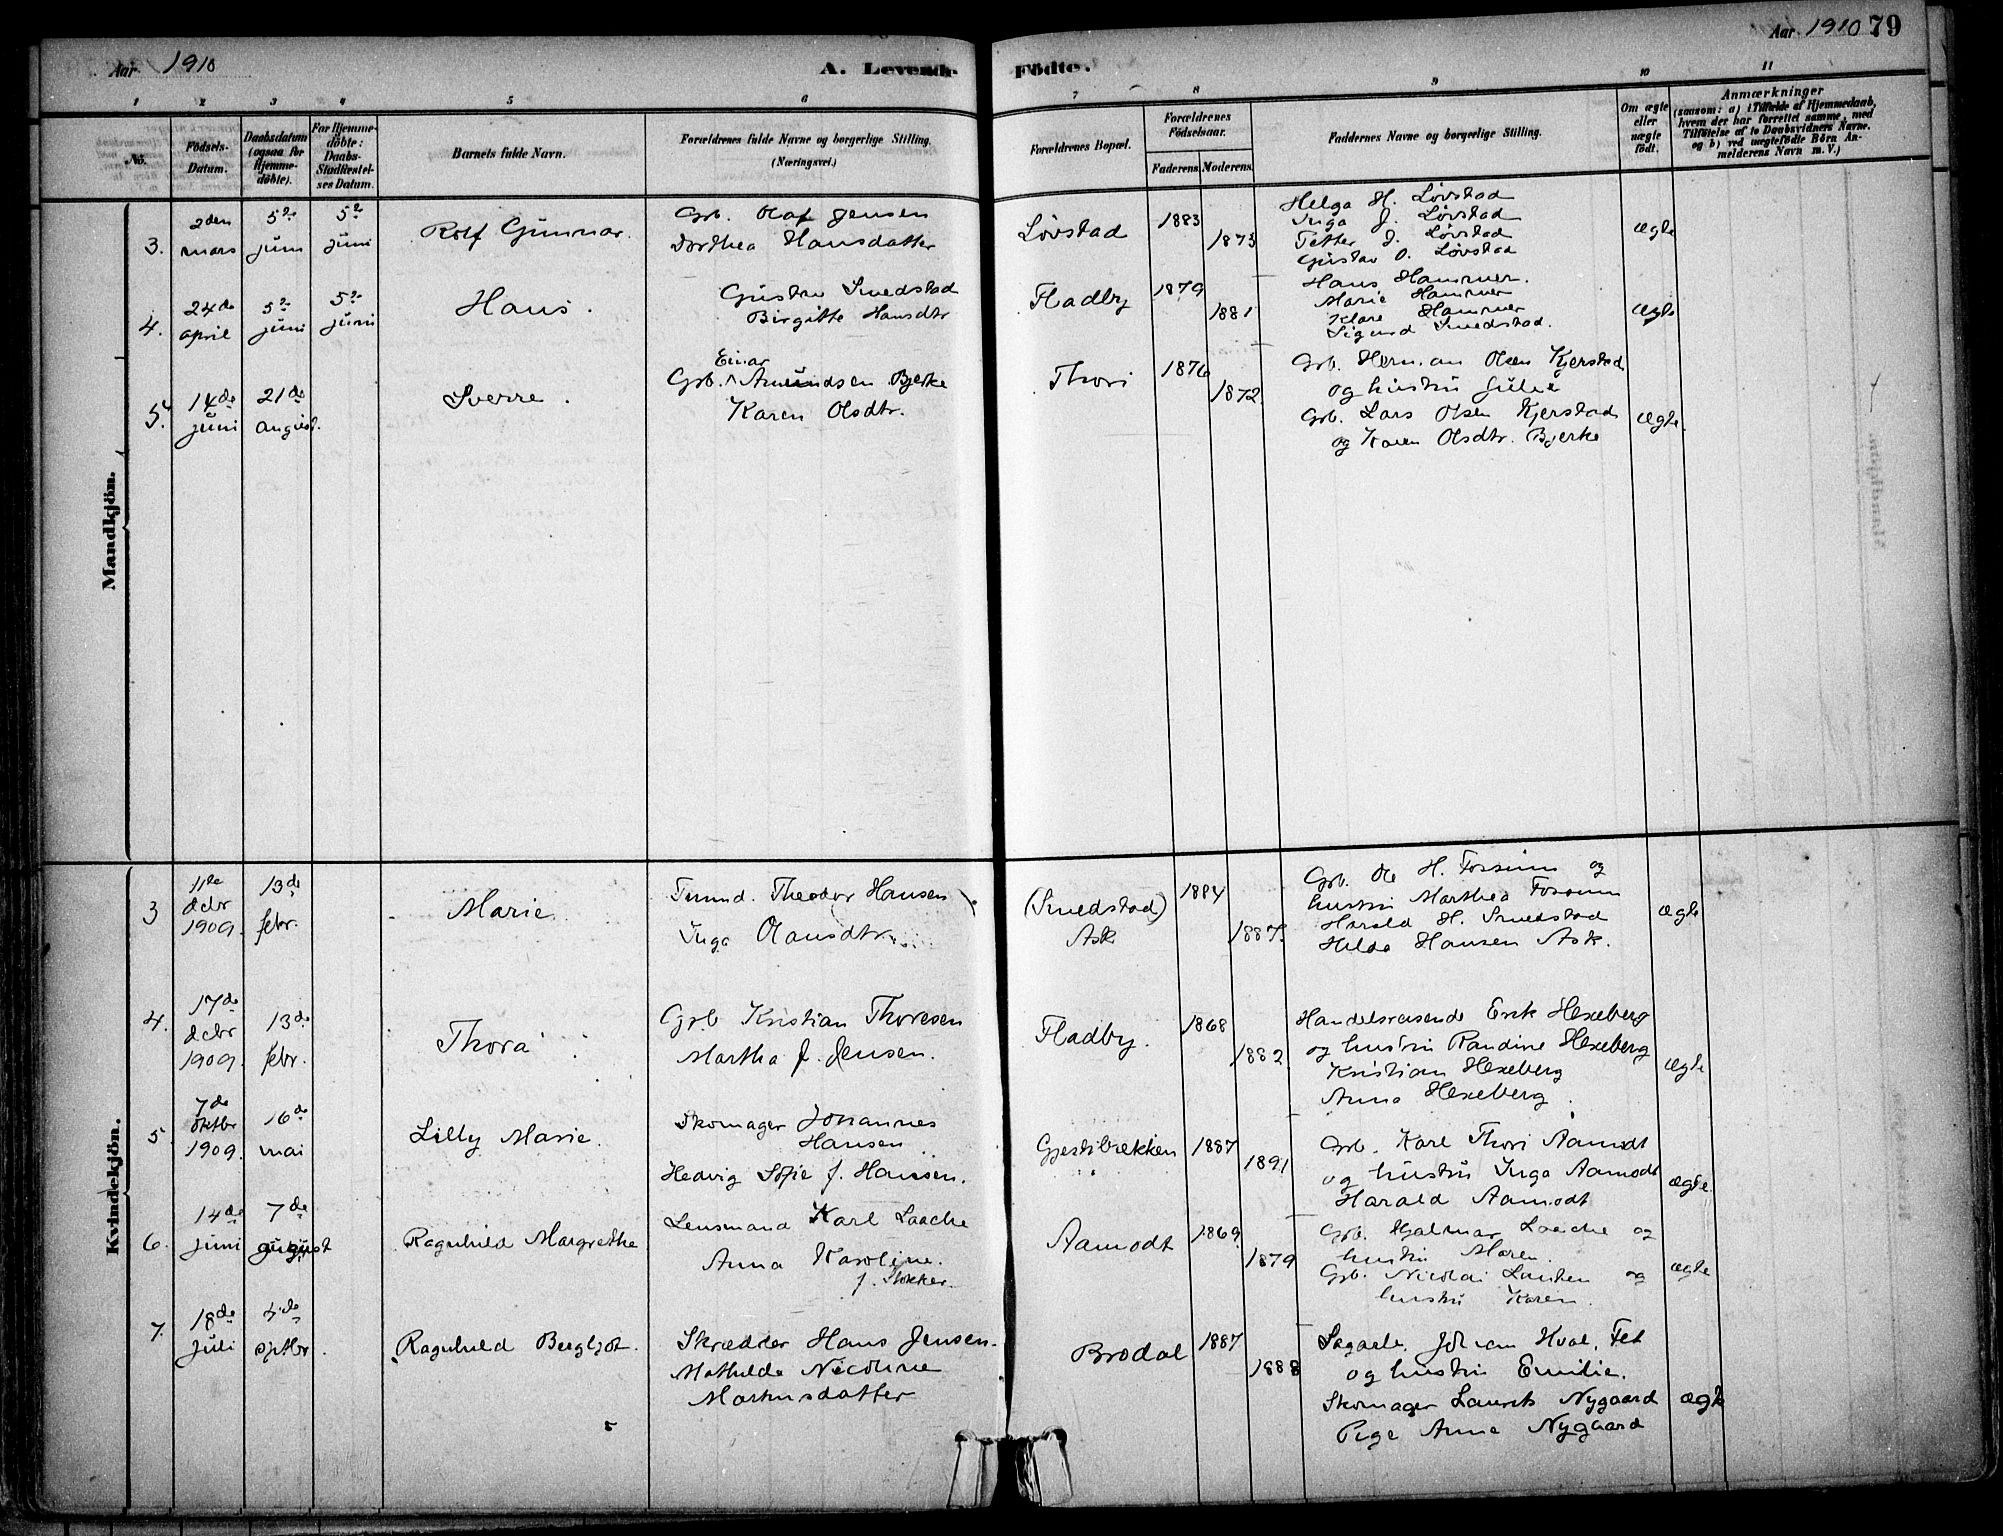 Aar 1910
A. Levende Födte.
Aar 1910 79
1 2 3 4 5 6 7 8 9 10 11
No.
Födsels-Datum.
Daabsdatum (ogsaa for Hjemme-döbte).
For Hjemme-döbte: Daabs-Stadfæstel-ses Datum.
Barnets fulde Navn.
Forældrenes fulde Navne og borgerlige Stilling.
(Næringsvei.)
Forældrenes Bopæl.
Forældrenes Födselsaar.
Faderens. Moderens.
Faddernes Navne og borgerlige Stilling.
Om ægte eller uægte födt.
Anmærkninger
(saasom: a) i Tilfælde af Hjemmedaab,
hvem der har forrettet samme, med
Tilföielse af to Daabsvidners Navne.
og b) ved uægtefödte Börn An-
melderens Navn m. V.)
Mandkjön.
3. 2den mars
5te juni
5te juni
Rolf Gunnar.
Grb. Olaf Jensen
Dorthea Hansdatter
Lövstad
1883
1873
Helga H. Lövstad
Inga J. Lövstad
Petter J. Lövstad
Gustav O. Lövstad
ægte
4. 24de april
5te juni
5te juni
Hans.
Gustav Smedstad
Birgitte Hansdtr
Fladby
1879
1881
Hans Hammer.
Marie Hammer
Klara Hammer
Sigurd Smedstad.
ægte
5. 14de juni
21de august.
Sverre.
Einar
Grb. Amundsen Bjerke
Karen Olsdtr.
Thori
1876
1872.
Grb. Herman Olsen Kjerstad
og hustru Julie
Grb. Lars Olsen Kjerstad
og Karen Olsdtr. Bjerke
ægte.
Kvindekjön.
3 11te decbr 1909.
13de febr.
Marie.
Tømmd. Theodor Hansen
Inga Olausdtr.
(Smedstad)
Ask
1884
1887.
Grb. Ole H. Fossum og
hustru Marthea Fossum
Harald H. Smedstad
Hilda Hansen Ask.
ægte
4. 17de decbr 1909.
13de febr.
Thora
Grb Kristian Thoresen
Martha f. Jensen.
Fladby.
1868
1882.
Handelsreisende Erik Hexeberg
og hustru Randine Hexeberg
Kristian Hexeberg
Anna Hexeberg.
ægte
5. 7de oktbr 1909.
16de mai
Lilly Marie.
Skomager Johannes
Hansen
Hedvig Sofie f. Hansen.
Gjestibækken
1887
1891
Grb. Karl Thori Aamodt
og hustru Inga Aamodt
Harald Aamodt
ægte.
6. 14de juni
7de august
Ragnhild Margrethe
Lensmand Karl Laache
Anna Karoline.
f. Stokker.
Aamodt
1869.
1879
Grb. Hjalmar Laache og
hustru Maren.
Grb. Nicolai Lauten og
hustru Karen.
ægte
7. 18de juli
4de septbr.
Ragnhild Bergljot.
Skrædder Hans Jensen.
Mathilde Nicoline
Martinsdatter
Brodal
1887
1888
Sagarb. Johan Hval, Fet
og hustru Emilie.
Skomager Laurits Nygaard
Pige Anna Nygaard
ægte